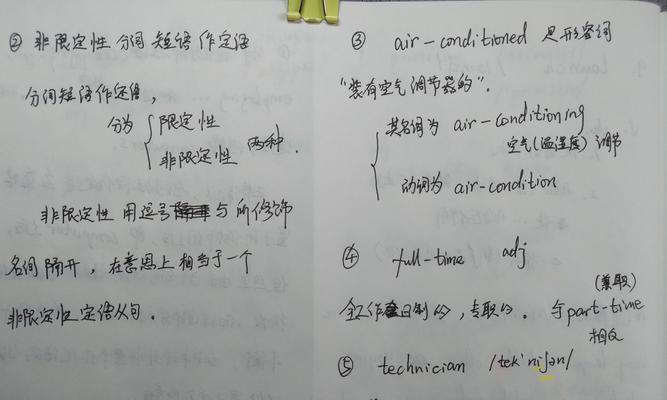 ② 非限定性 分词 短语 作定语
分词短语作定语，
分为 限定性
非限定性 两种．
非限定性 用逗号 与所修饰
名词隔开，在意思上相当于一个
非限定性定语从句．
③ air-conditioned 是形容词
“装有空气调节器的”．
其名词为 air-conditioning
空气(温湿度)调节
动词为 air-condition
④ full-time adj
全工作日制的，专职的．与part-time
(兼职)
相反
⑤ technician /tek'niʃən/